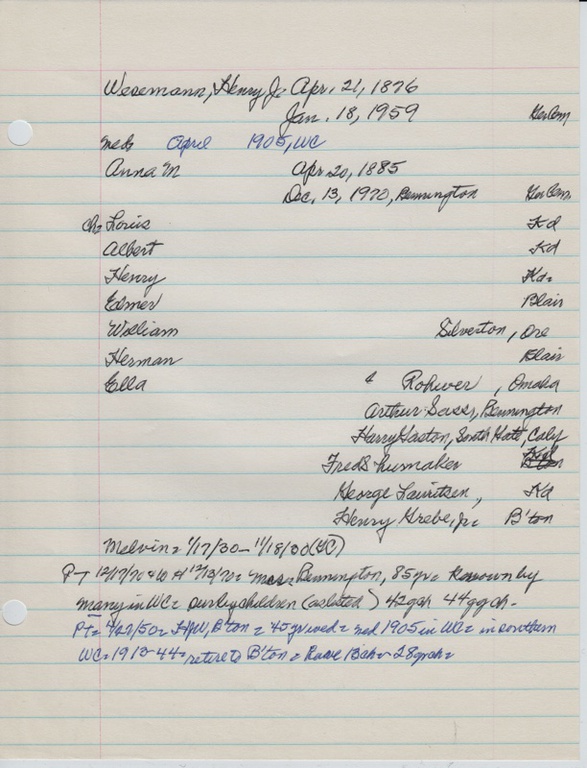 Wesemann, Henry J= Apr. 21, 1876
Jan. 18, 1959 GerCem
md= April 1905, WC
Anna M Apr 20, 1885
Dec. 13, 1970, Bennington GerCem
Ch= Louis Kd
Albert Kd
Henry Kd=
Elmer Blair
William Silverton, Ore
Herman Blair
Ella & Rohwer, Omaha
Arthur Sass, Bennington
Harry Gaston, South Gate, Calif
Fred Shumaker Kd
George Lauritsen, Kd
Henry Grebe, Jr= B'ton
Melvin= 1/17/30 - 11/18/30 (GC)
P-T 12/17/70 12/13/70= Mrs= Bennington, 85yr= Known by
many in WC= surby children (as listed) 42gch 44ggch-
PT= 4/27/50= HJW, B'ton = 45yrwed= md 1905 in WC= in southern
WC= 1913-44= retire to B'ton = Have 13ch= 28grch=